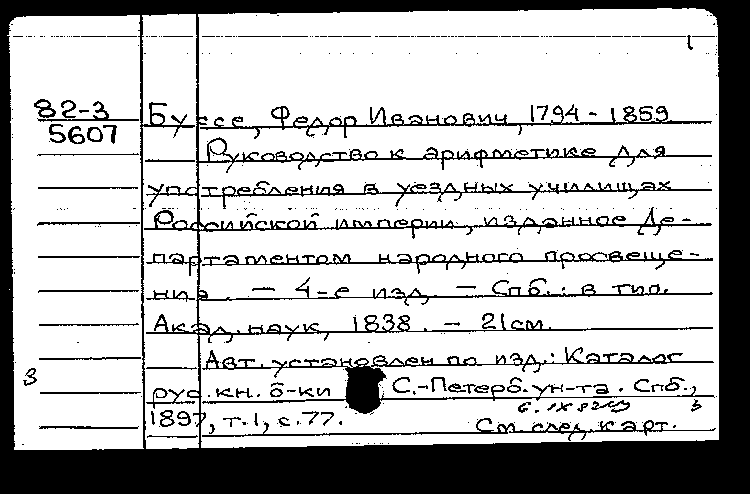 1
82-3
5607
Буссе, Федор Иванович, 1794 - 1859
Руководство к арифметике для
употребления в уездных училищах
Российской империи, изданное Де-
партаментом народного просвеще-
ния. — 4-е изд. — Спб.: в тип.
Акад. наук, 1838. — 21см.
Авт. установлен по изд.: Каталог
3
рус. кн. б-ки С.-Петерб. ун-та. Спб.,
1897, т.1, с.77.
См. след. карт.